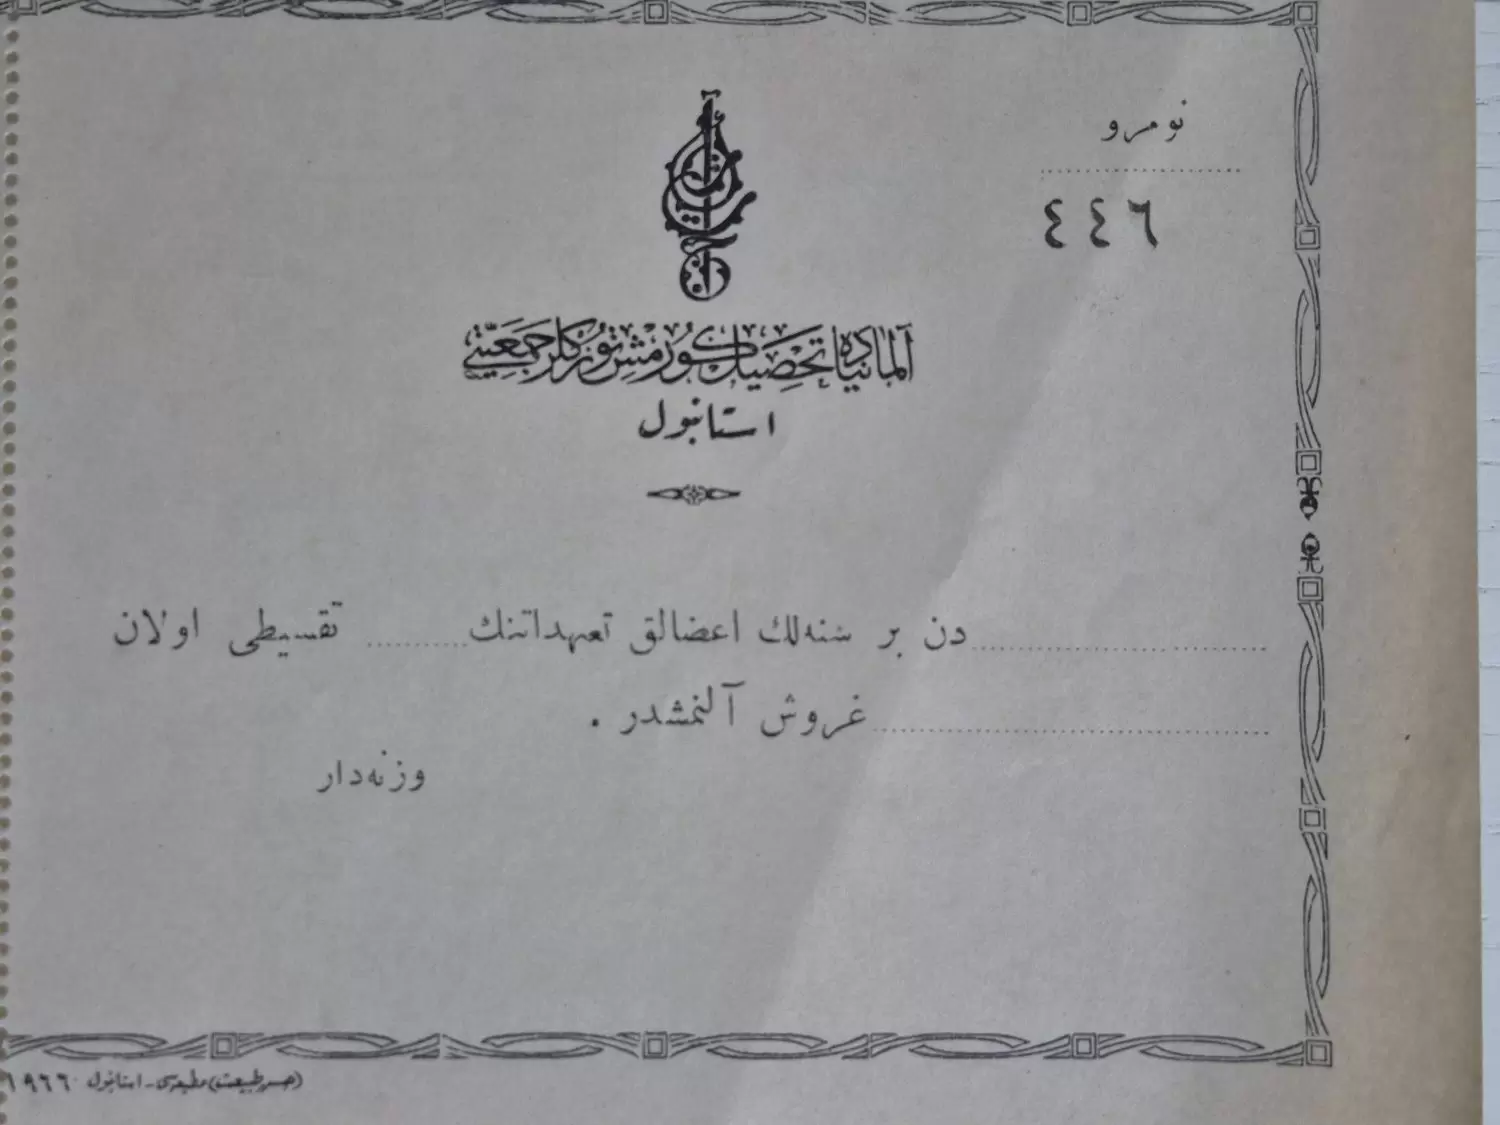 نومرو
٤٤٦
آلمانیاده تحصیل کورمش تورکلر جمعیتی
استانبول
دن بر سنه‌لك اعضالق تعهداتنك ........ تقسیطی اولان
غروش آلنمشدر .
وزنه‌دار
(عصر طبیعت) مطبعه‌سی - استانبول ١٩٦٦